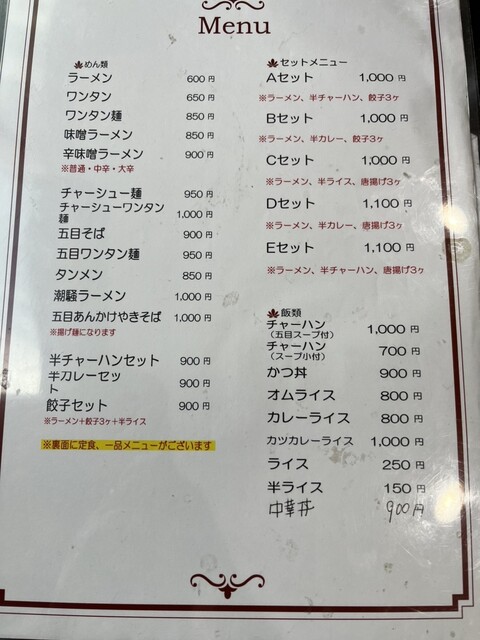 Menu
めん類
ラーメン 600円
ワンタン 650円
ワンタン麺 850円
味噌ラーメン 850円
辛味噌ラーメン 900円
※普通・中辛・大辛
チャーシュー麺 950円
チャーシューワンタン
麺 1,000円
五目そば 900円
五目ワンタン麺 950円
タンメン 850円
潮騒ラーメン 1,000円
五目あんかけやきそば 1,000円
※揚げ麺になります
半チャーハンセット 900円
半カレーセッ
ト 900円
餃子セット 900円
※ラーメン+餃子3ヶ+半ライス
※裏面に定食、一品メニューがございます
セットメニュー
Aセット 1,000円
※ラーメン、半チャーハン、餃子3ヶ
Bセット 1,000円
※ラーメン、半カレー、餃子3ヶ
Cセット 1,000円
※ラーメン、半ライス、唐揚げ3ヶ
Dセット 1,100円
※ラーメン、半カレー、唐揚げ3ヶ
Eセット 1,100円
※ラーメン、半チャーハン、唐揚げ3ヶ
飯類
チャーハン 1,000円
(五目スープ付)
チャーハン 700円
(スープ小付)
かつ丼 900円
オムライス 800円
カレーライス 800円
カツカレーライス 1,000円
ライス 250円
半ライス 150円
中華丼 900円